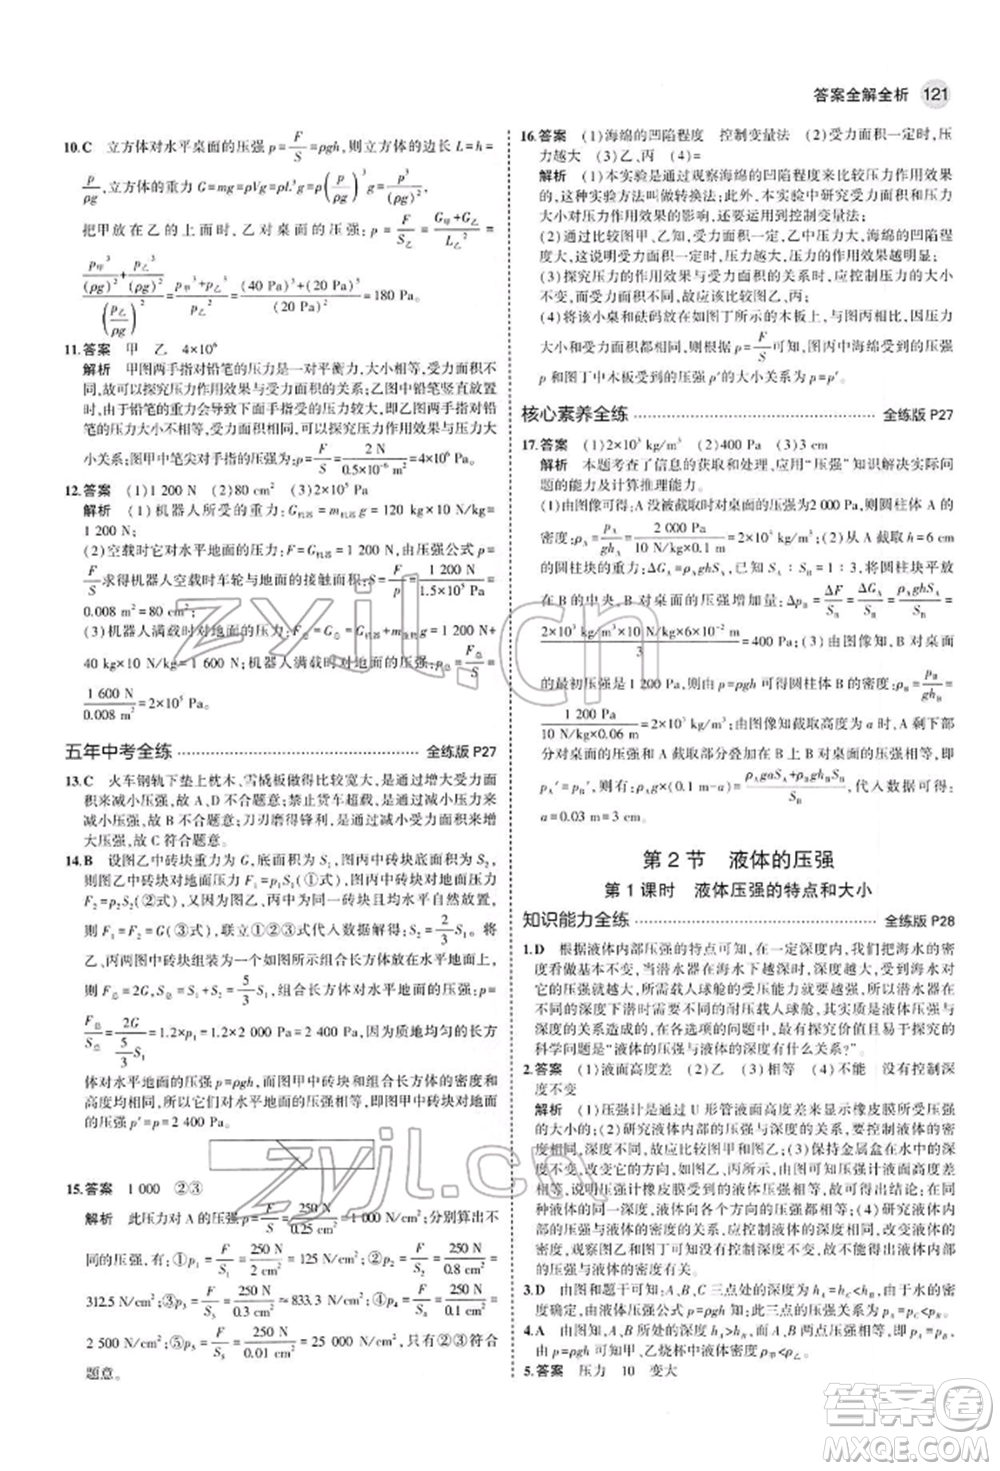 答案全解全析 121
10.C 立方体对水平桌面的压强 p=F/S=ρgh,则立方体的边长 L=h=
p/ρg,立方体的重力 G=mg=ρVg=ρL³g=ρ(p/ρg)³g=p³/(ρg)²,
把甲放在乙的上面时,乙对桌面的压强:p=F/S乙=(G甲+G乙)/L乙²=
(p甲³/(ρg)²+p乙³/(ρg)²)/(p乙/ρg)²=(p甲³+p乙³)/p乙²=((40 Pa)³+(20 Pa)³)/(20 Pa)²=180 Pa。
11.答案 甲 乙 4×10⁶
解析 甲图两手指对铅笔的压力是一对平衡力,大小相等,方向相
反,故可以探究压力作用效果与受力面积的关系;乙图铅笔竖直放置
时,由于铅笔的重力会使下方的手指受到的压力更大,即乙图两手指对铅
笔的压力大小不同,受力面积相同,可以探究压力作用效果与压力大
小关系;图甲中笔尖对手指的压强为:p=F/S=2 N/(0.5×10⁻⁶ m²)=4×10⁶ Pa。
12.答案 (1)1 200 N (2)80 cm² (3)2×10⁵ Pa
解析 (1)机器人所受的重力:G机器=m机器g=120 kg×10 N/kg=
1 200 N;
(2)空载时它对水平地面的压力:F=G机器=1 200 N,由压强公式 p=
F/S求得机器人空载时车轮与地面的接触面积:S=F/p=1 200 N/(1.5×10⁵ Pa)=
0.008 m²=80 cm²;
(3)机器人满载时对地面的压力:F总=G总=1 200 N+
40 kg×10 N/kg=1 600 N;机器人满载时对地面的压强:p=F总/S=
1 600 N/0.008 m²=2×10⁵ Pa。
五年中考全练 全练版 P27
13.C 火车钢轨下垫上枕木、雪橇板做得比较宽大,都是通过增大受力面
积来减小压强,故 A、D 不合题意;禁止货车超载,是通过减小压力来
减小压强,故 B 不合题意;刀刃磨得锋利,是通过减小受力面积来增
大压强,故 C 符合题意。
14.B 设图乙中砖块重力为 G,底面积为 S₁,图丙中砖块底面积为 S₂,
F₁=F₂=G,联立①②③式代入数据解得:S₂=2/3 S₁。
将图乙、丙中砖块组装为一个大砖块对水平地面的压力、受力面积为:
F总=2G,S总=S₁+S₂=5/3 S₁,组合后大砖块对水平地面的压强:p=
F总/S总=2G/(5/3 S₁)=1.2×p₁=1.2×2 000 Pa=2 400 Pa,因为质地均匀的长方
体对水平地面的压强 p=ρgh,而图甲中砖块和图丁中大砖块的密度、
高度均是相同的,故图甲中砖块对水平地面的压强 p'=p=2 400 Pa。
15.答案 1 000 ②③
解析 此压力对 A 的压强 p=F/S=250 N/0.25 cm²=1 000 N/cm²;分别算出不
同的压强,有:①p₁=F/S₁=250 N/2 cm²=125 N/cm²;②p₂=F/S₂=250 N/0.8 cm²=
312.5 N/cm²;③p₃=F/S₃=250 N/0.3 cm²≈833.3 N/cm²;④p₄=F/S₄=250 N/0.1 cm²=
2 500 N/cm²;⑤p₅=F/S₅=250 N/0.01 cm²=25 000 N/cm²,只有②③符合
题意。
16.答案 (1)海绵的凹陷程度 控制变量法 (2)受力面积一定时,压
力越大 (3)乙、丙 (4)=
解析 (1)本实验是通过观察海绵的凹陷程度来比较压力作用效果
的,这种实验方法叫做转换法;此外,本实验中研究受力面积和压力
大小对压力作用效果的影响,还要用到控制变量法;
(2)由比较图甲、乙知,受力面积一定,乙中压力大,海绵的凹陷程
度大,这说明受力面积一定时,压力越大,压力的作用效果越明显;
(3)探究压力的作用效果与受力面积的关系时,应控制压力的大小不
变,改变受力面积的大小,故应该比较图乙、丙;
(4)将该小桌和砝码放在如图丁所示的木板上,与图丙相比,因压力
大小和受力面积大小均不变,根据 p=F/S可知,图丙中海绵受到的压强
p 和图丁中木板受到的压强 p'的大小关系为 p=p'。
核心素养全练 全练版 P27
17.答案 (1)2×10³ kg/m³ (2)400 Pa (3)3 cm
解析 本题考查了信息的获取和处理,应用“压强”知识解决实际问
题的能力及计算推理能力。
(1)由图像可得:A 没被截取时对桌面的压强为2 000 Pa,则圆柱体 A 的
密度:ρA=pA/ghA=2 000 Pa/(10 N/kg×0.1 m)=2×10³ kg/m³;(2)从 A 截取 h=6 cm
的圆柱块的重力:ΔGA=ρAghSA,SA∶SB=1∶3,将截取部分放在
B 的中央,B 对桌面的压强增加量:ΔpB=ΔF/SB=ΔGA/SB=ρAghSA/SB=
(2×10³ kg/m³×10 N/kg×6×10⁻² m)/3=400 Pa;(3)由图像知,B 对桌面
的最初压强是1 200 Pa,根据 p=ρgh 可得圆柱体 B 的密度:ρB=pB/ghB=
1 200 Pa/(10 N/kg×0.1 m)
部分对桌面的压强等于
pA'=pB',
a=0.03 m=3 cm。
第 2 节 液体的压强
第 1 课时 液体压强的特点和大小
知识能力全练 全练版 P28
1.D 根据液体内部压强的特点可知,在一定深度内,我们把海水的密
度看做基本不变,当潜水器在海水下越深时,深度越大,海水的压强
越大,所以需提高载人球舱的受压能力,所以潜水器在
深度下潜时需要用不同的耐压载人球舱,是考虑液体压强与
深度的关系造成的,在各选项的问题中,最有探究价值且易于探究的
科学问题是“液体的压强与液体的深度有什么关系?”
2.答案 (1)液面高度差 (2)乙 (3)相等 (4)不能 没有控制深
度不变
解析 (1)压强计是通过 U 形管液面高度差来显示橡皮膜所受压强
的大小的;(2)研究液体内部的压强与液体深度的关系时,应控制液体
的密度相同,深度不同,所以应比较图甲和图乙;(3)保持金属盒在水中的深
(4)探究液体内部压
强与液体的密度的关系,应控制液体的深度不变,改变液体的密
度,观察图乙和图丁可知没有控制深度不变,故不能得出液体压强
与液体密度有关。
3.D 由图和题干可知,A、B、C 三点处的深度为 hA=hC<hB,由于水的密
度确定,由液体压强公式 p=ρgh 知,此三点的压强关系为 pA=pC<pB。
4.A 由图知,A、B 所处的深度 hA>hB,因两点压强相等,
由 p=ρgh 可知,甲、乙烧杯中液体密度 ρ甲<ρ乙。
5.答案 压力 10 变大